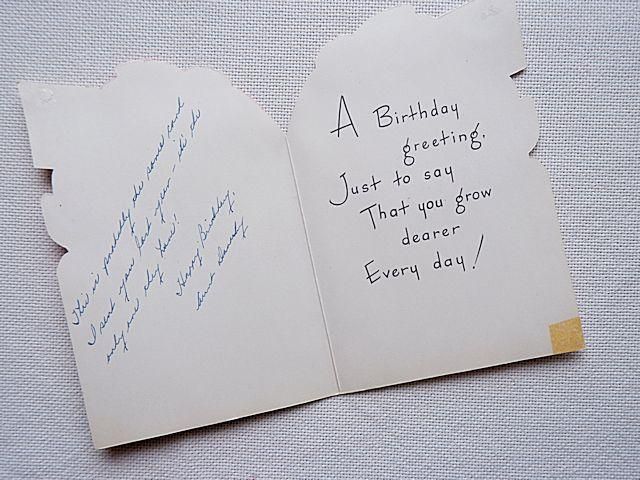 This is probably the same card
I sent you last year - it's the
only one they have!
Happy Birthday,
Aunt
A Birthday
greeting,
Just to say
That you grow
dearer
Every day!